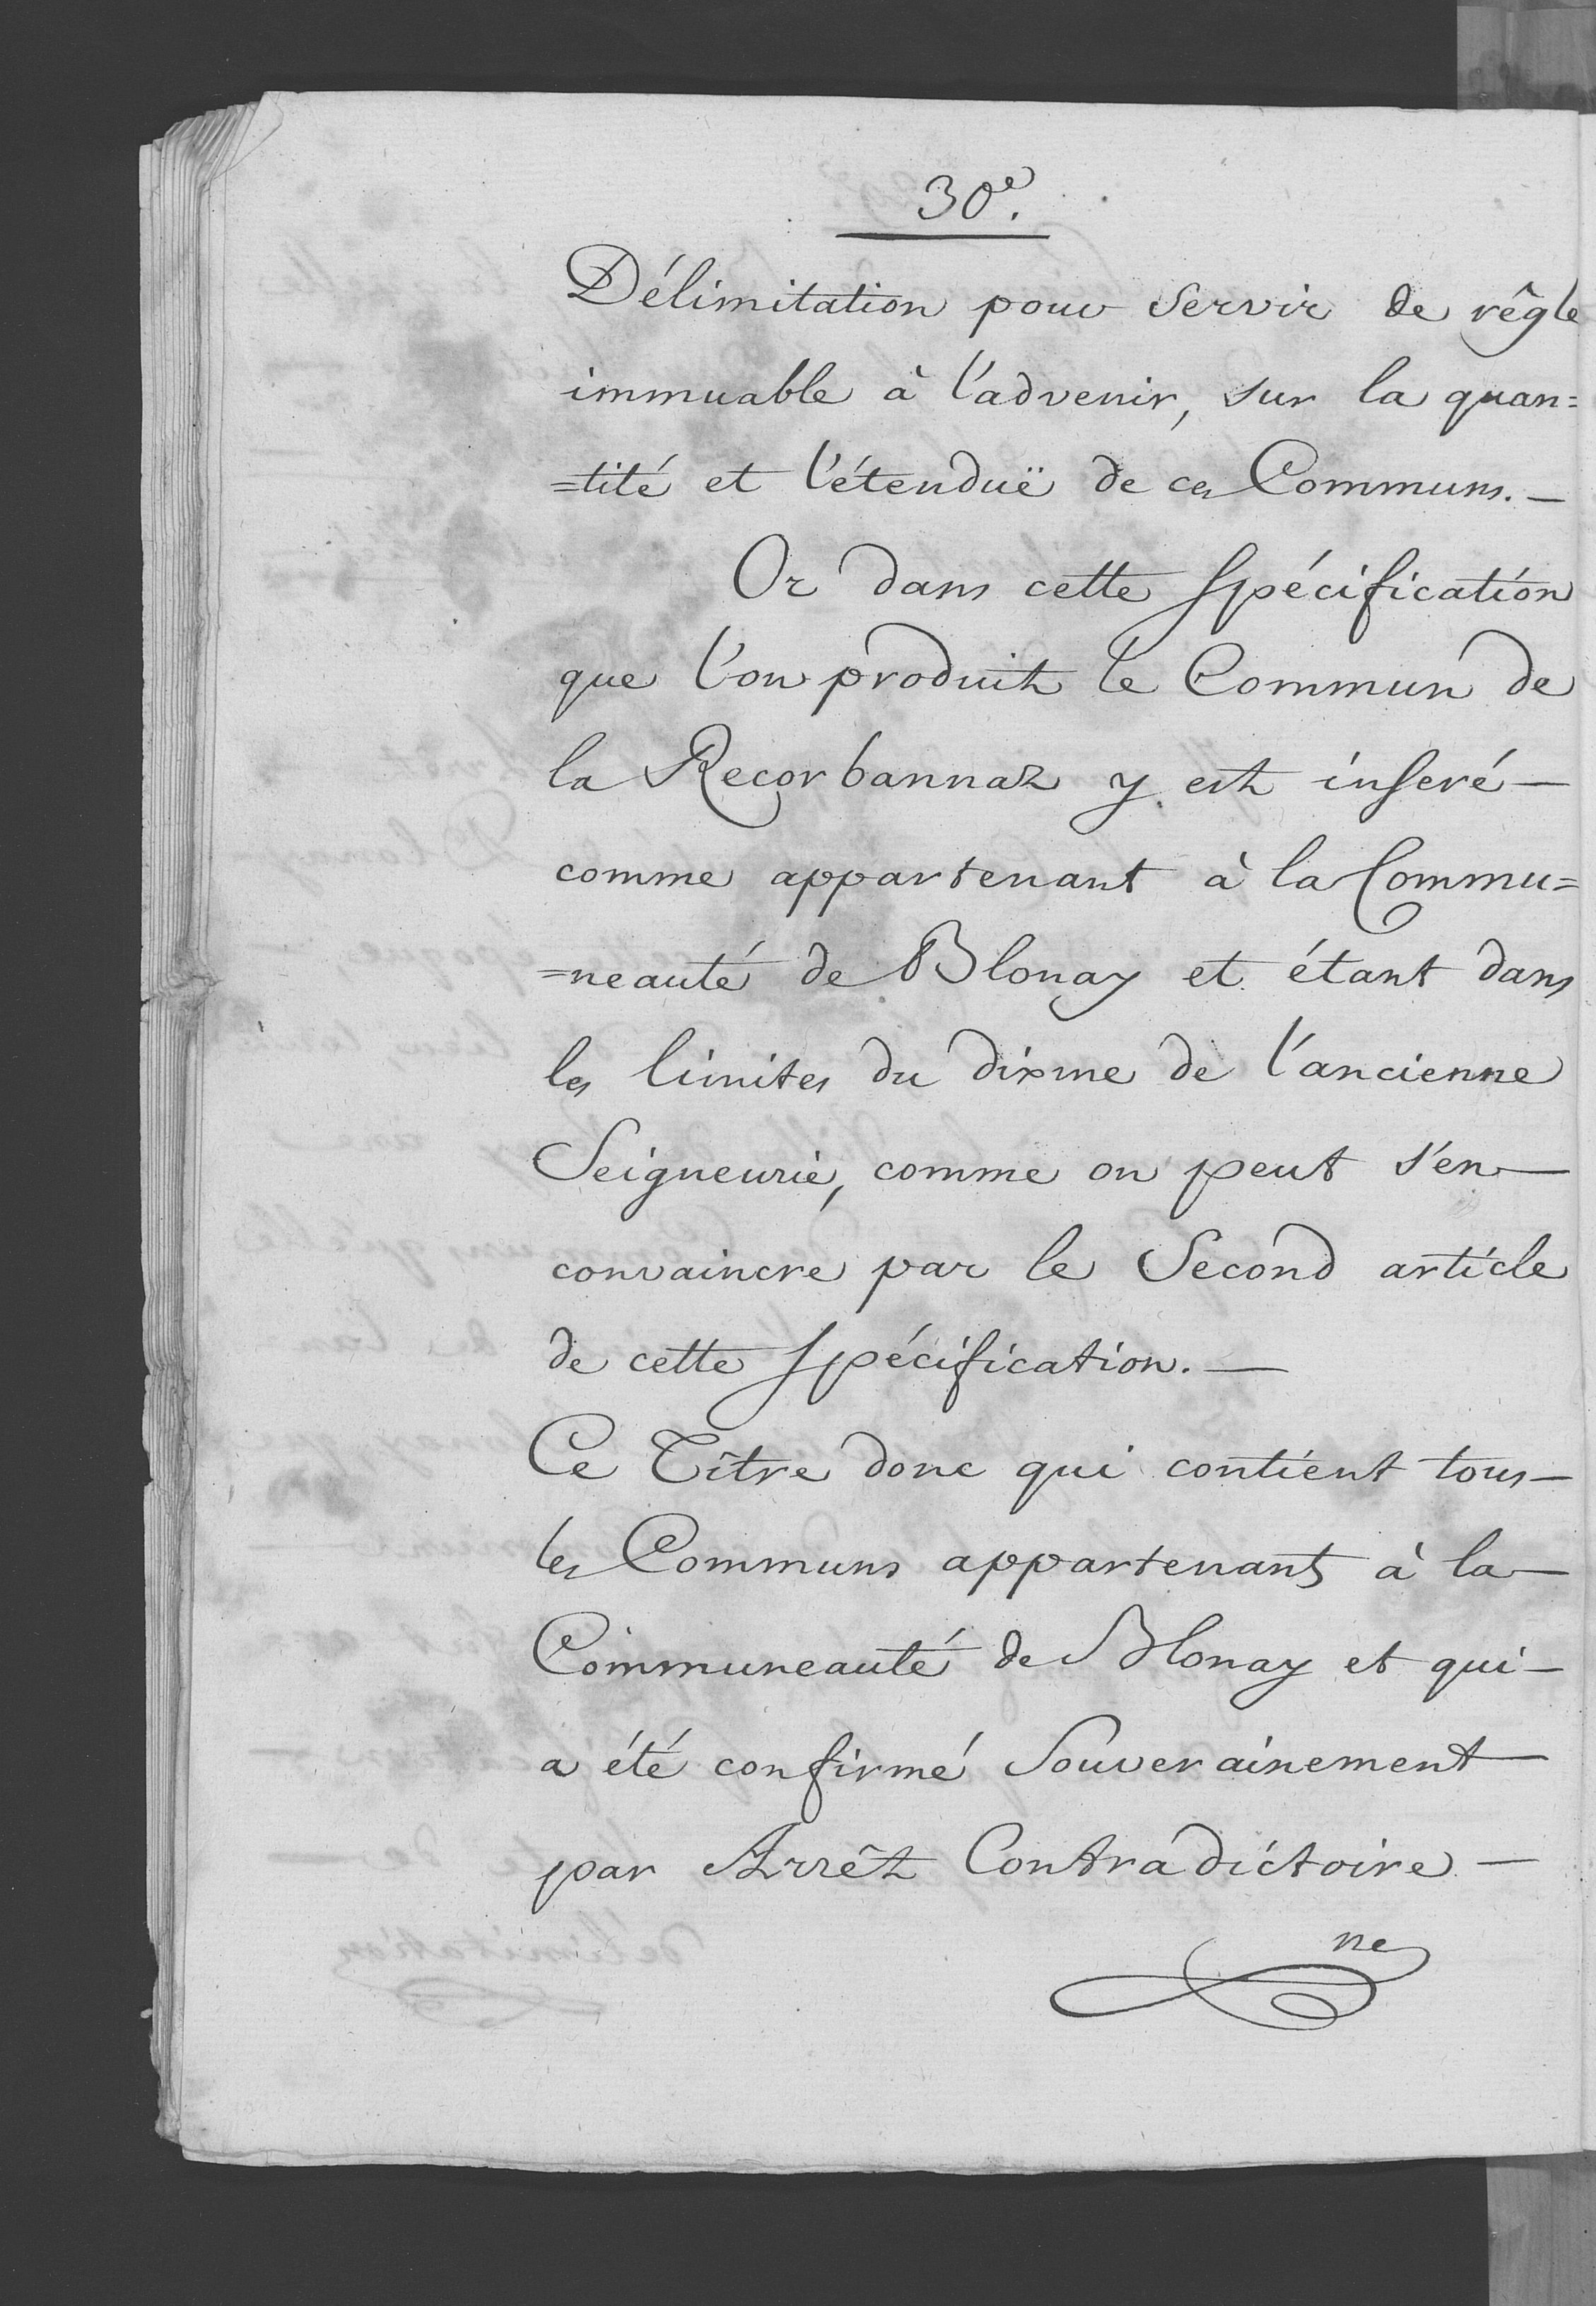 30e.
Délimitation pour servir de rêgle
immuable à l'advenir, sur la quan=
=tité et l'étenduë de ces Communs. —
Or dans cette spécification
que l'on produit le Commun de
la Recorbannaz y est inseré —
comme appartenant à la Commu=
=neauté de Blonay et étant dans
les limites du dixme de l'ancienne
Seigneurie, comme on peut s'en —
convaincre par le Second article
de cette spécification. —
Ce Titre donc qui contient tous —
les Communs appartenants à la —
Communeauté de Blonay et qui —
a été confirmé Souverainement —
par Arrêt Contradictoire —
ne